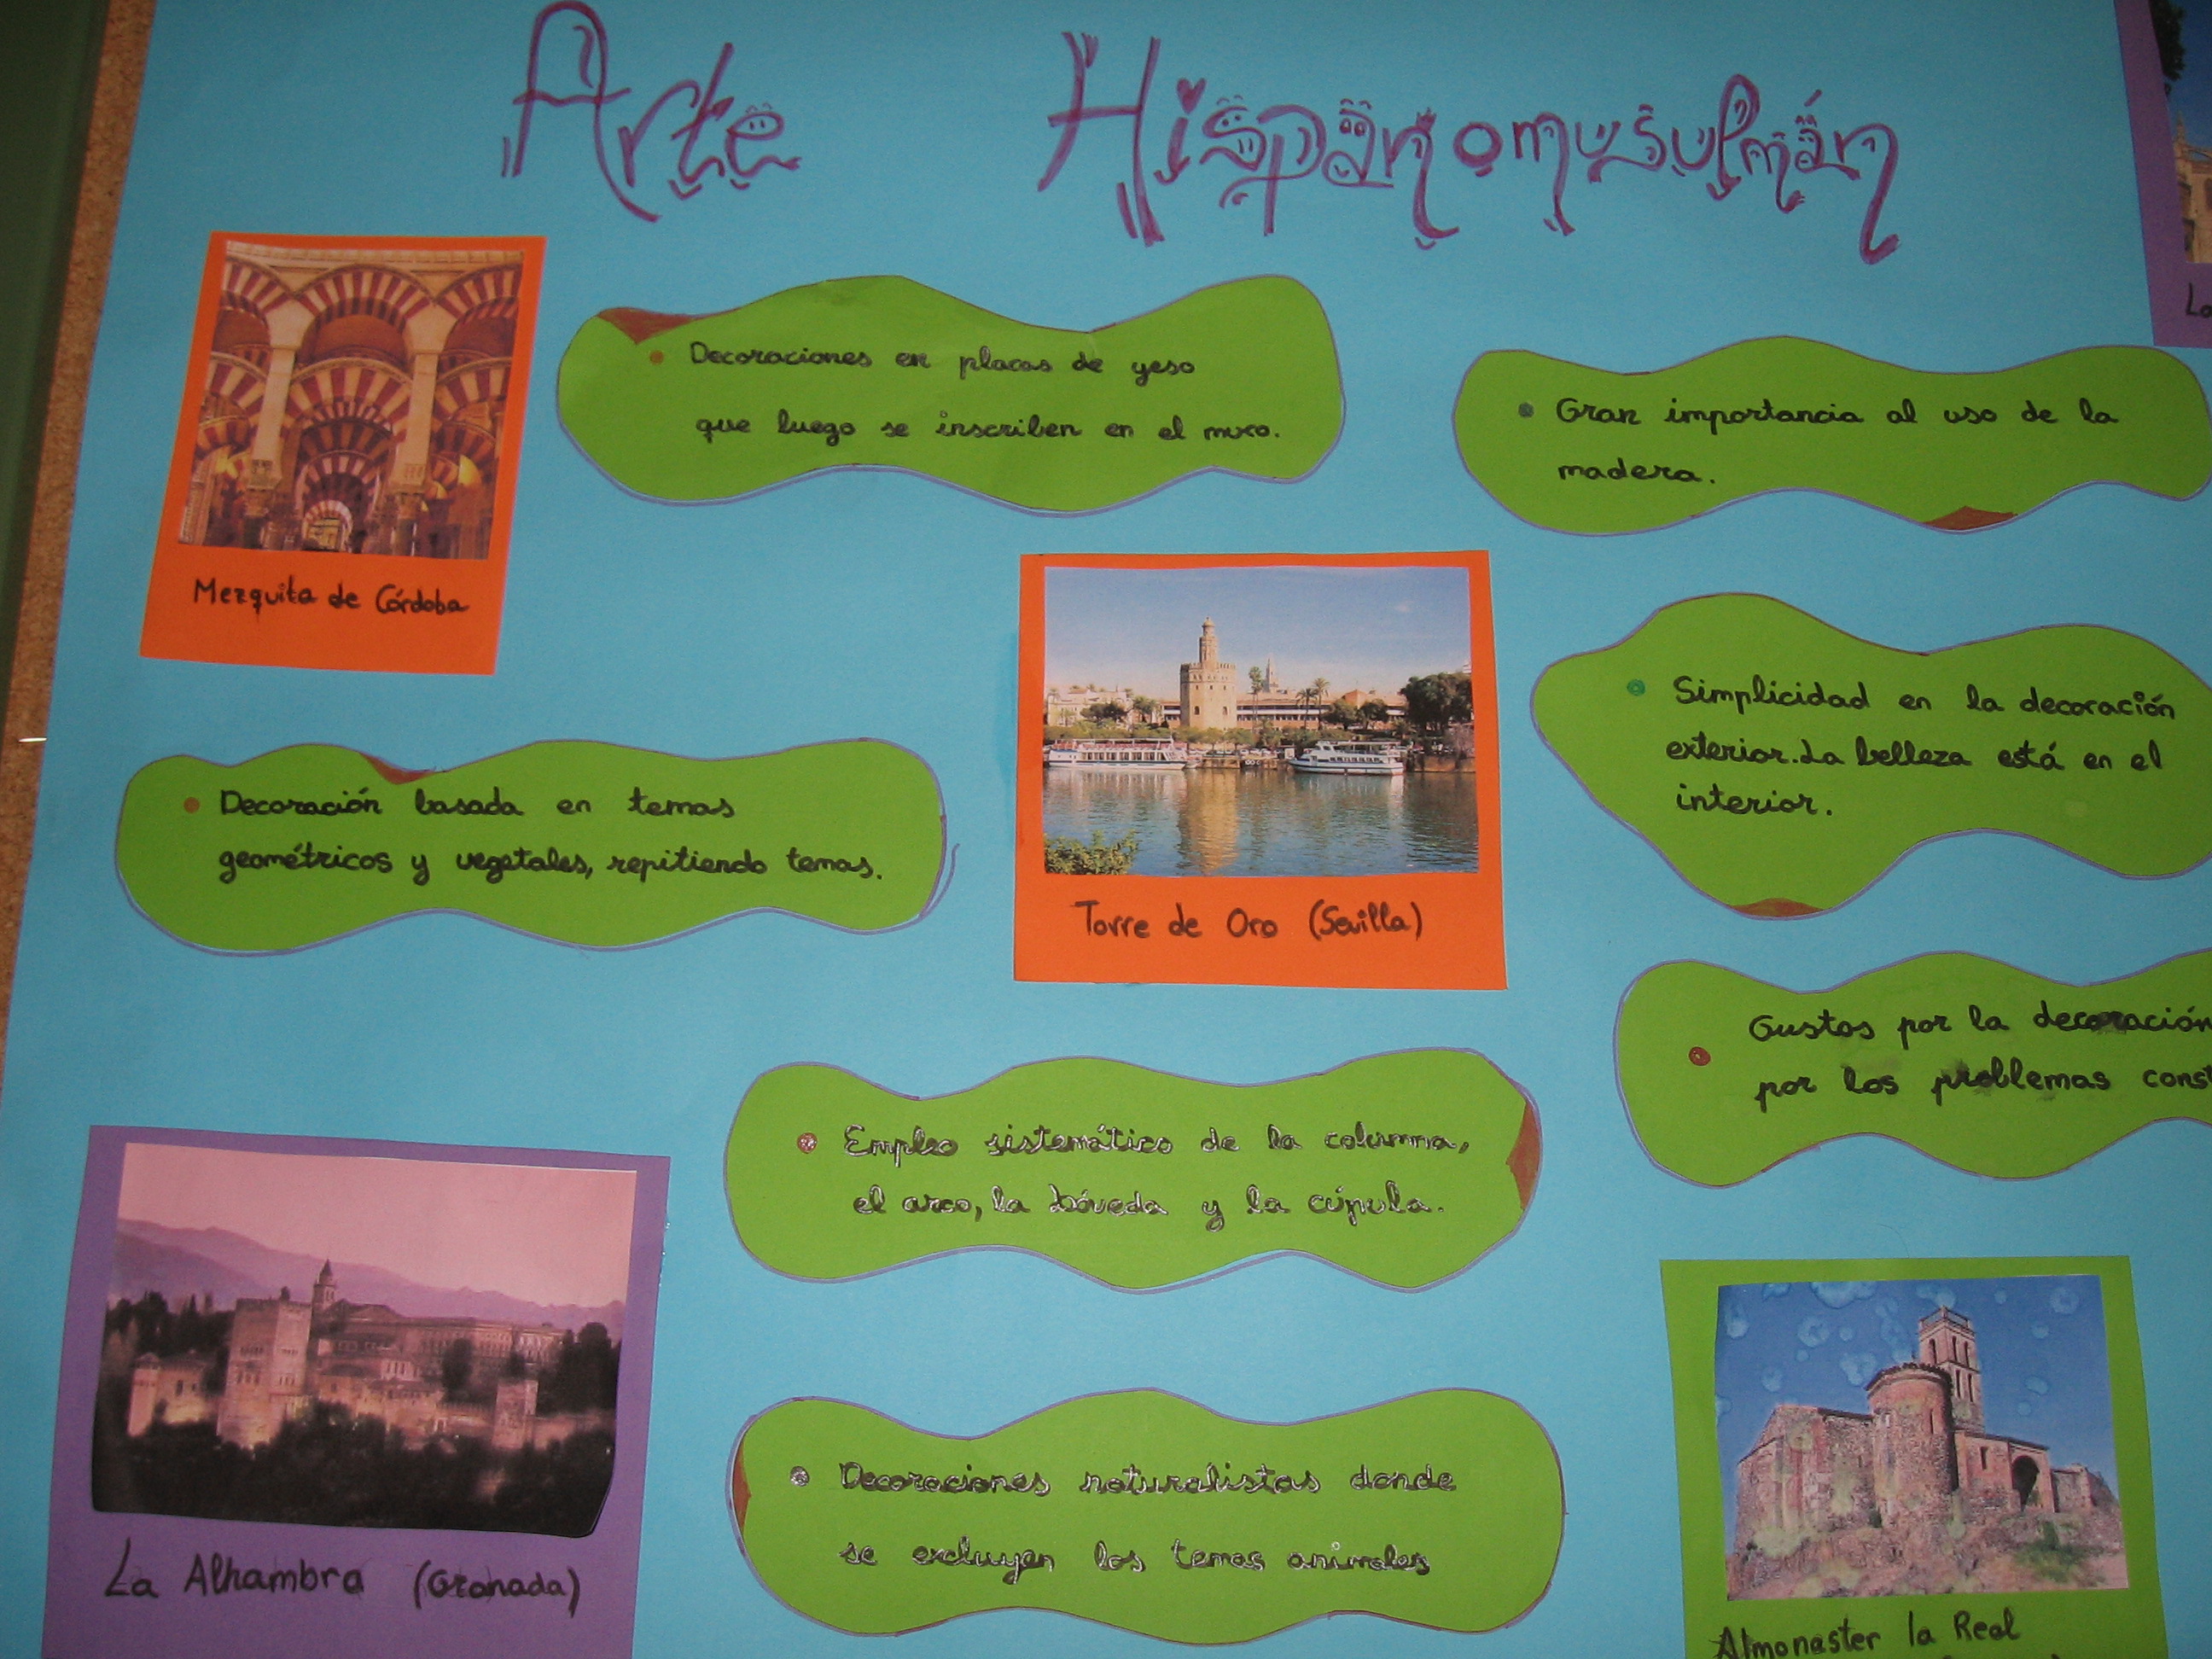 Arte Hispanomusulmán
Mezquita de Córdoba
Decoraciones en placas de yeso
que luego se inscriben en el muro.
Gran importancia al uso de la
madera.
Lo
Torre de Oro (Sevilla)
Simplicidad en la decoración
exterior. La belleza está en el
interior.
Decoración basada en temas
geométricos y vegetales, repitiendo temas.
Gustos por la decoración
por los problemas const
Empleo sistemático de la columna,
el arco, la bóveda y la cúpula.
La Alhambra (Granada)
Decoraciones naturalistas donde
se excluyen los temas animales
Almonaster la Real